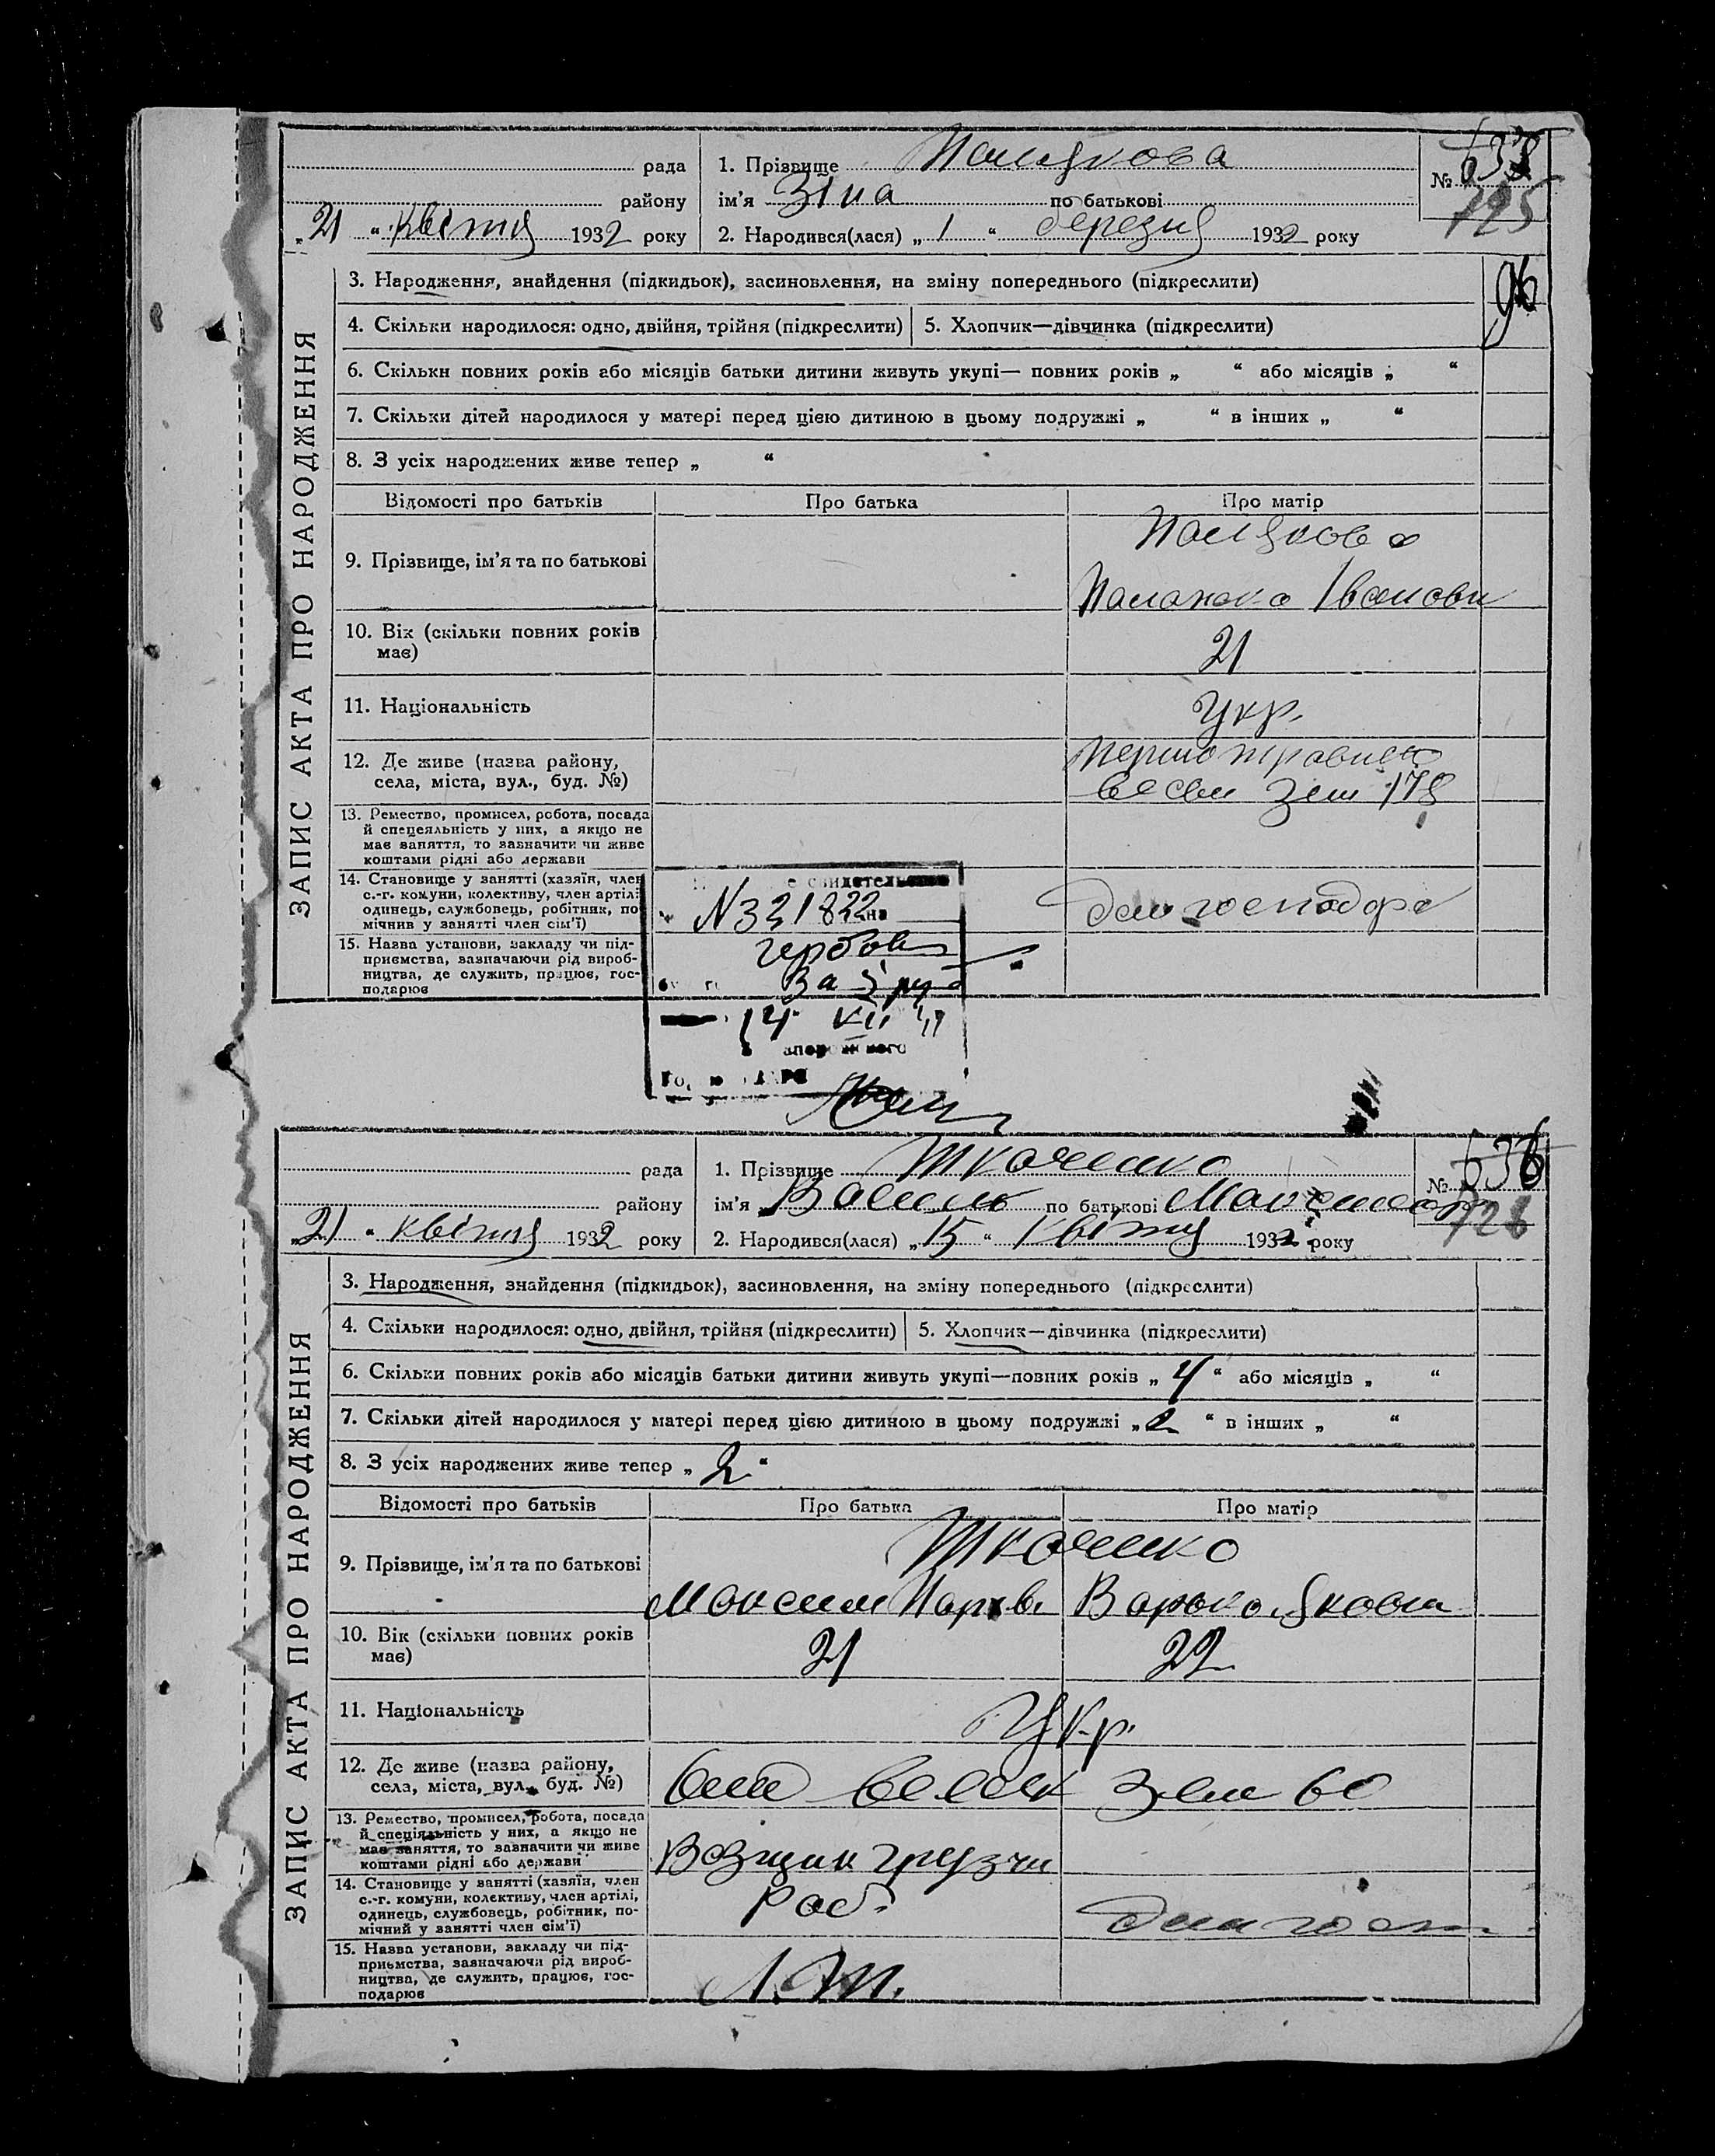 рада
району
„21“ квітня 1932 року
1. Прізвище
ім’я Зіна по батькові
2. Народився(лася) „1“ березня 1932 року
№
725
96
ЗАПИС АКТА ПРО НАРОДЖЕННЯ
3. Народження, знайдення (підкидьок), засиновлення, на зміну попереднього (підкреслити)
4. Скільки народилося: одно, двійня, трійня (підкреслити)
5. Хлопчик—дівчинка (підкреслити)
6. Скільки повних років або місяців батьки дитини живуть укупі— повних років „ “ або місяців „ “
7. Скільки дітей народилося у матері перед цією дитиною в цьому подружжі „ “ в інших „ “
8. З усіх народжених живе тепер „ “
Відомості про батьків Про батька Про матір
9. Прізвище, ім’я та по батькові
10. Вік (скільки повних років
має)
21
11. Національність
Укр.
12. Де живе (назва району,
села, міста, вул., буд. №)
178
13. Ремество, промисел, робота, посада
й спецеяльність у них, а якщо не
має заняття, то зазначити чи живе
коштами рідні або держави
14. Становище у занятті (хазяїн, член
с.-г. комуни, колективу, член артілі
одинець, службовець, робітник, по
мічнив у занятті член сім’ї)
дом господарка
15. Назва установи, закладу чи під-
приємства, зазначаючи рід вироб-
ництва, де служить, працює, гос-
подарює
свидетельство
№ 321822
гербов
За 5 руб
14 VII
рада
району
„21“ квітня 1932 року
1. Прізвище Ткаченко
ім’я Василь по батькові
2. Народився(лася) „15“ квітня 1932 року
№ 636
726
ЗАПИС АКТА ПРО НАРОДЖЕННЯ
3. Народження, знайдення (підкидьок), засиновлення, на зміну попереднього (підкреслити)
4. Скільки народилося: одно, двійня, трійня (підкреслити)
5. Хлопчик—дівчинка (підкреслити)
6. Скільки повних років або місяців батьки дитини живуть укупі—повних років „4“ або місяців „ “
7. Скільки дітей народилося у матері перед цією дитиною в цьому подружжі „2“ в інших „ “
8. З усіх народжених живе тепер „2“
Відомості про батьків Про батька Про матір
Ткаченко
9. Прізвище, ім’я та по батькові
Максим Варька
10. Вік (скільки повних років
має)
21 22
11. Національність
Укр.
12. Де живе (назва району,
села, міста, вул., буд. №)
Зем 60
13. Ремество, промисел, робота, посада
й спеціяльність у них, а якщо не
має заняття, то зазначити чи живе
коштами рідні або держави
14. Становище у занятті (хазяїн, член
с.-г. комуни, колективу, член артілі,
одинець, службовець, робітник, по-
мічний у занятті член сім’ї)
Роб. дом госп.
15. Назва установи, закладу чи під-
приємства, зазначаючи рід вироб-
ництва, де служить, працює, гос-
подарює